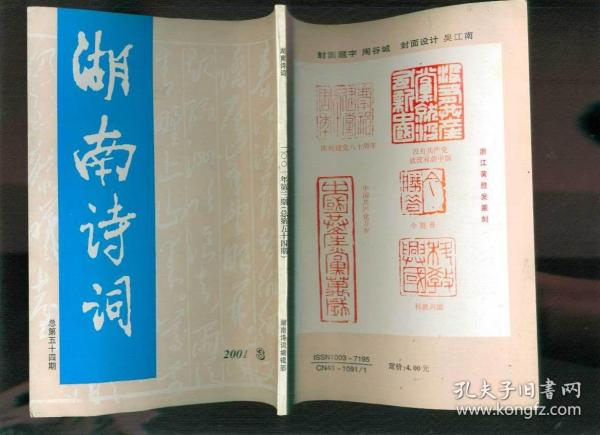 湖南诗词
总第五十四期
2001 3
湖南诗词
二〇〇一年第三期(总第五十四期)
湖南诗词编辑部
封面题字 周谷城 封面设计 吴江南
庆祝建党八十周年
没有共产党
就没有新中国
中国共产党万岁
今胜昔
科教兴国
浙江黄胜发篆刻
ISSN1003-7195
CN43-1091/1
定价:4.00元
孔夫子旧书网
www.kongfz.com